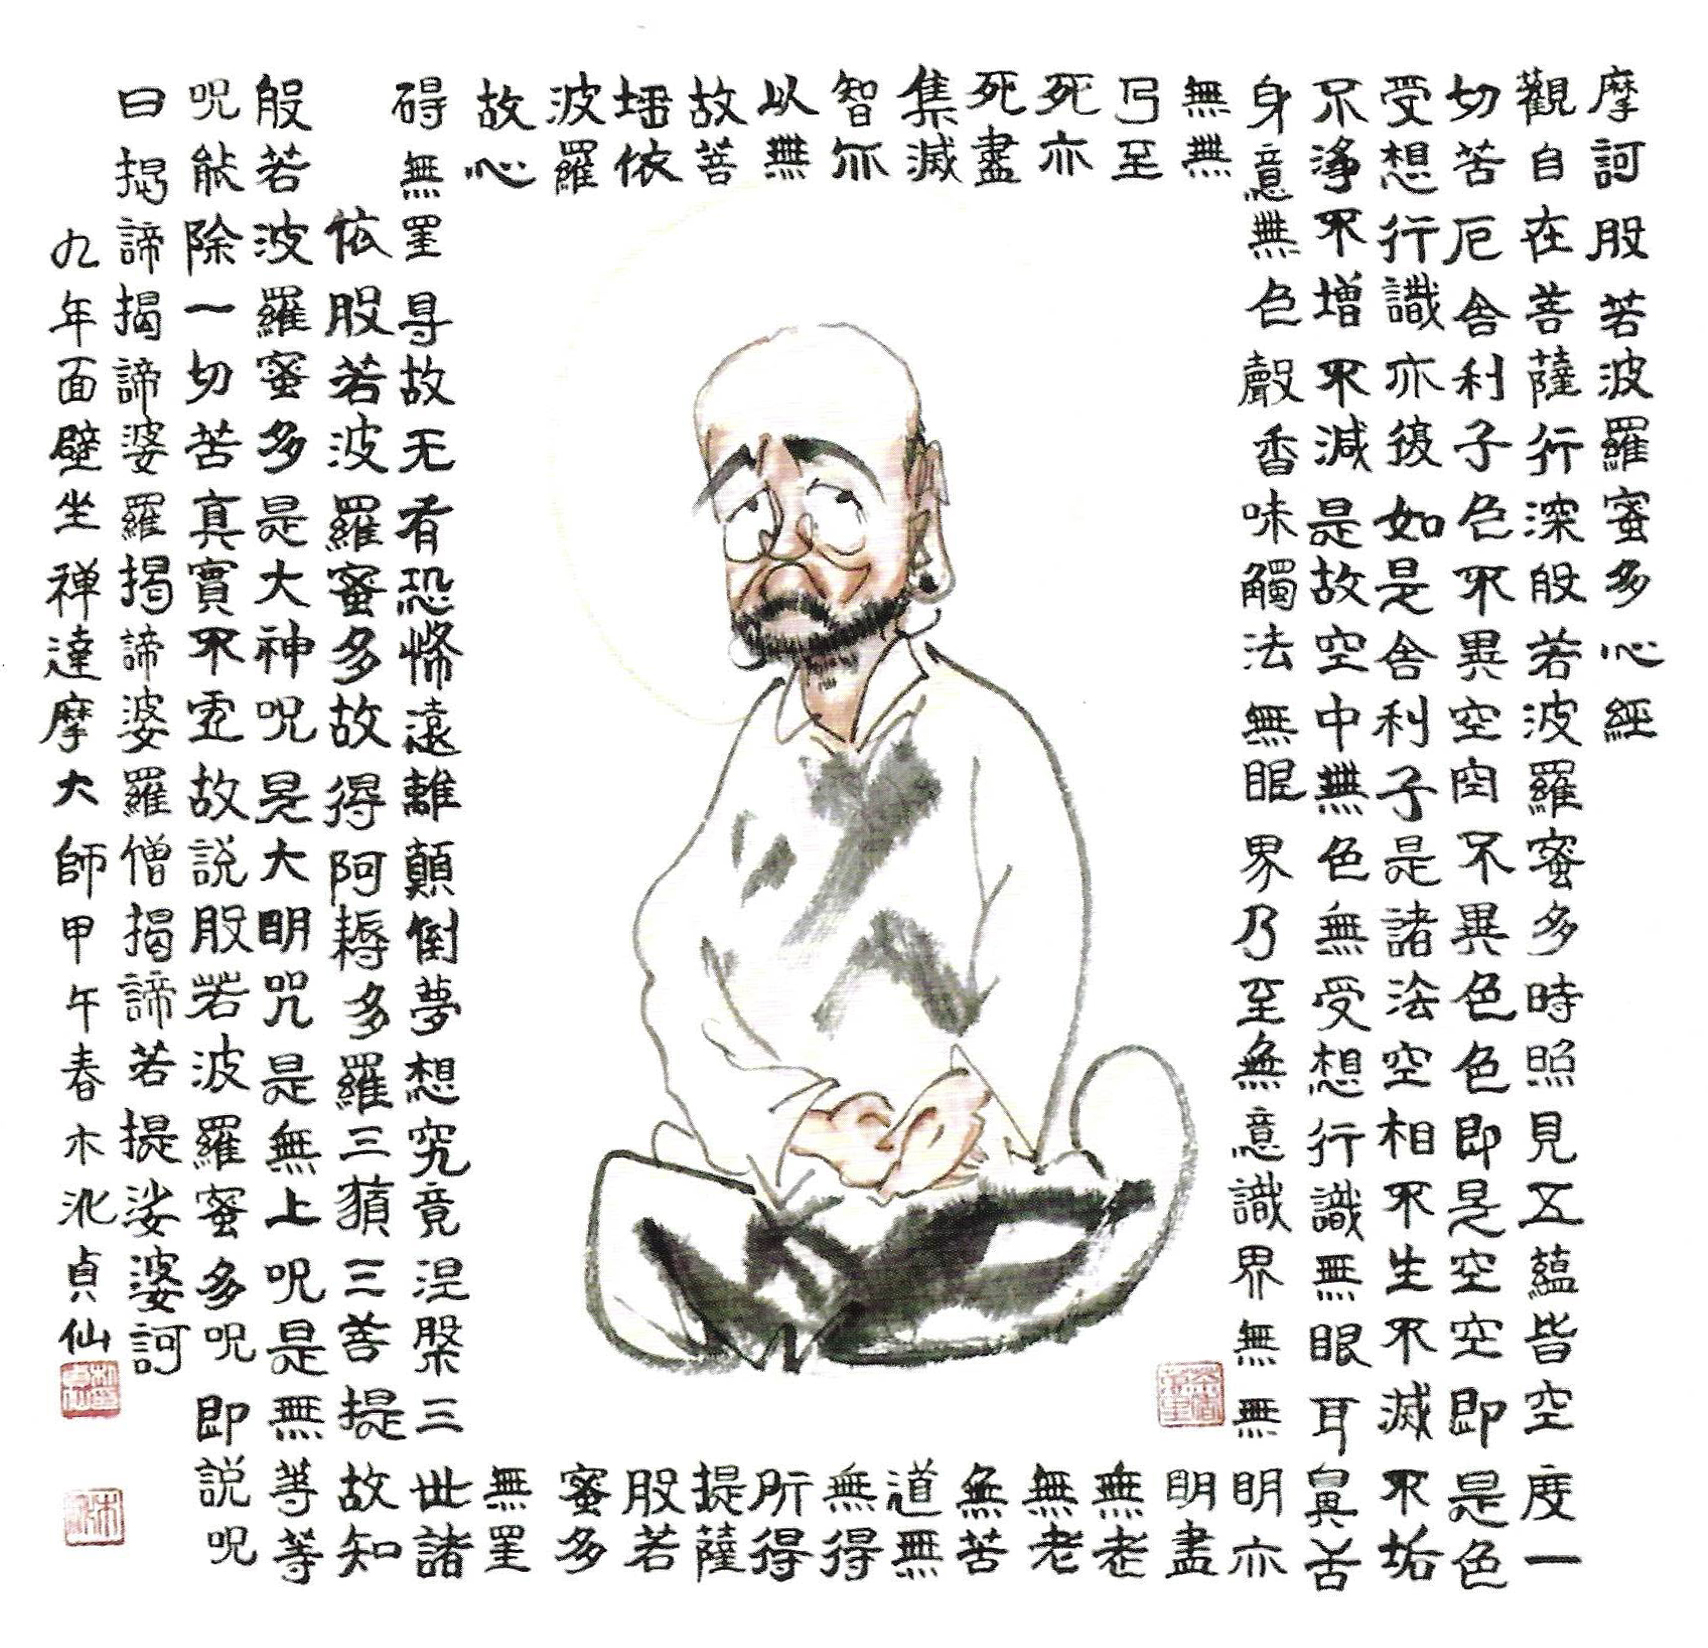 摩訶般若波羅蜜多心經
觀自在菩薩行深般若波羅蜜多時照見五蘊皆空度一
切苦厄舍利子色不異空空不異色色即是空空即是色
受想行識亦復如是舍利子是諸法空相不生不滅不垢
不淨不增不減是故空中無色無受想行識無眼耳鼻舌
身意無色聲香味觸法無眼界乃至無意識界無無明亦
無無明盡
乃至無老
死亦無老
死盡無苦
集滅道無
智亦無得
以無所得
故菩提薩
埵依般若
波羅蜜多
故心無罣
碍無罣㝵故无有恐怖遠離顛倒夢想究竟涅槃三世諸
依般若波羅蜜多故得阿耨多羅三藐三菩提故知
般若波羅蜜多是大神呪是大明咒是無上呪是無等等
呪能除一切苦真實不虛故説般若波羅蜜多呪即説呪
曰揭諦揭諦婆羅揭諦婆羅僧揭諦若提娑婆訶
九年面壁坐禅達摩大師甲午春木沘貞仙